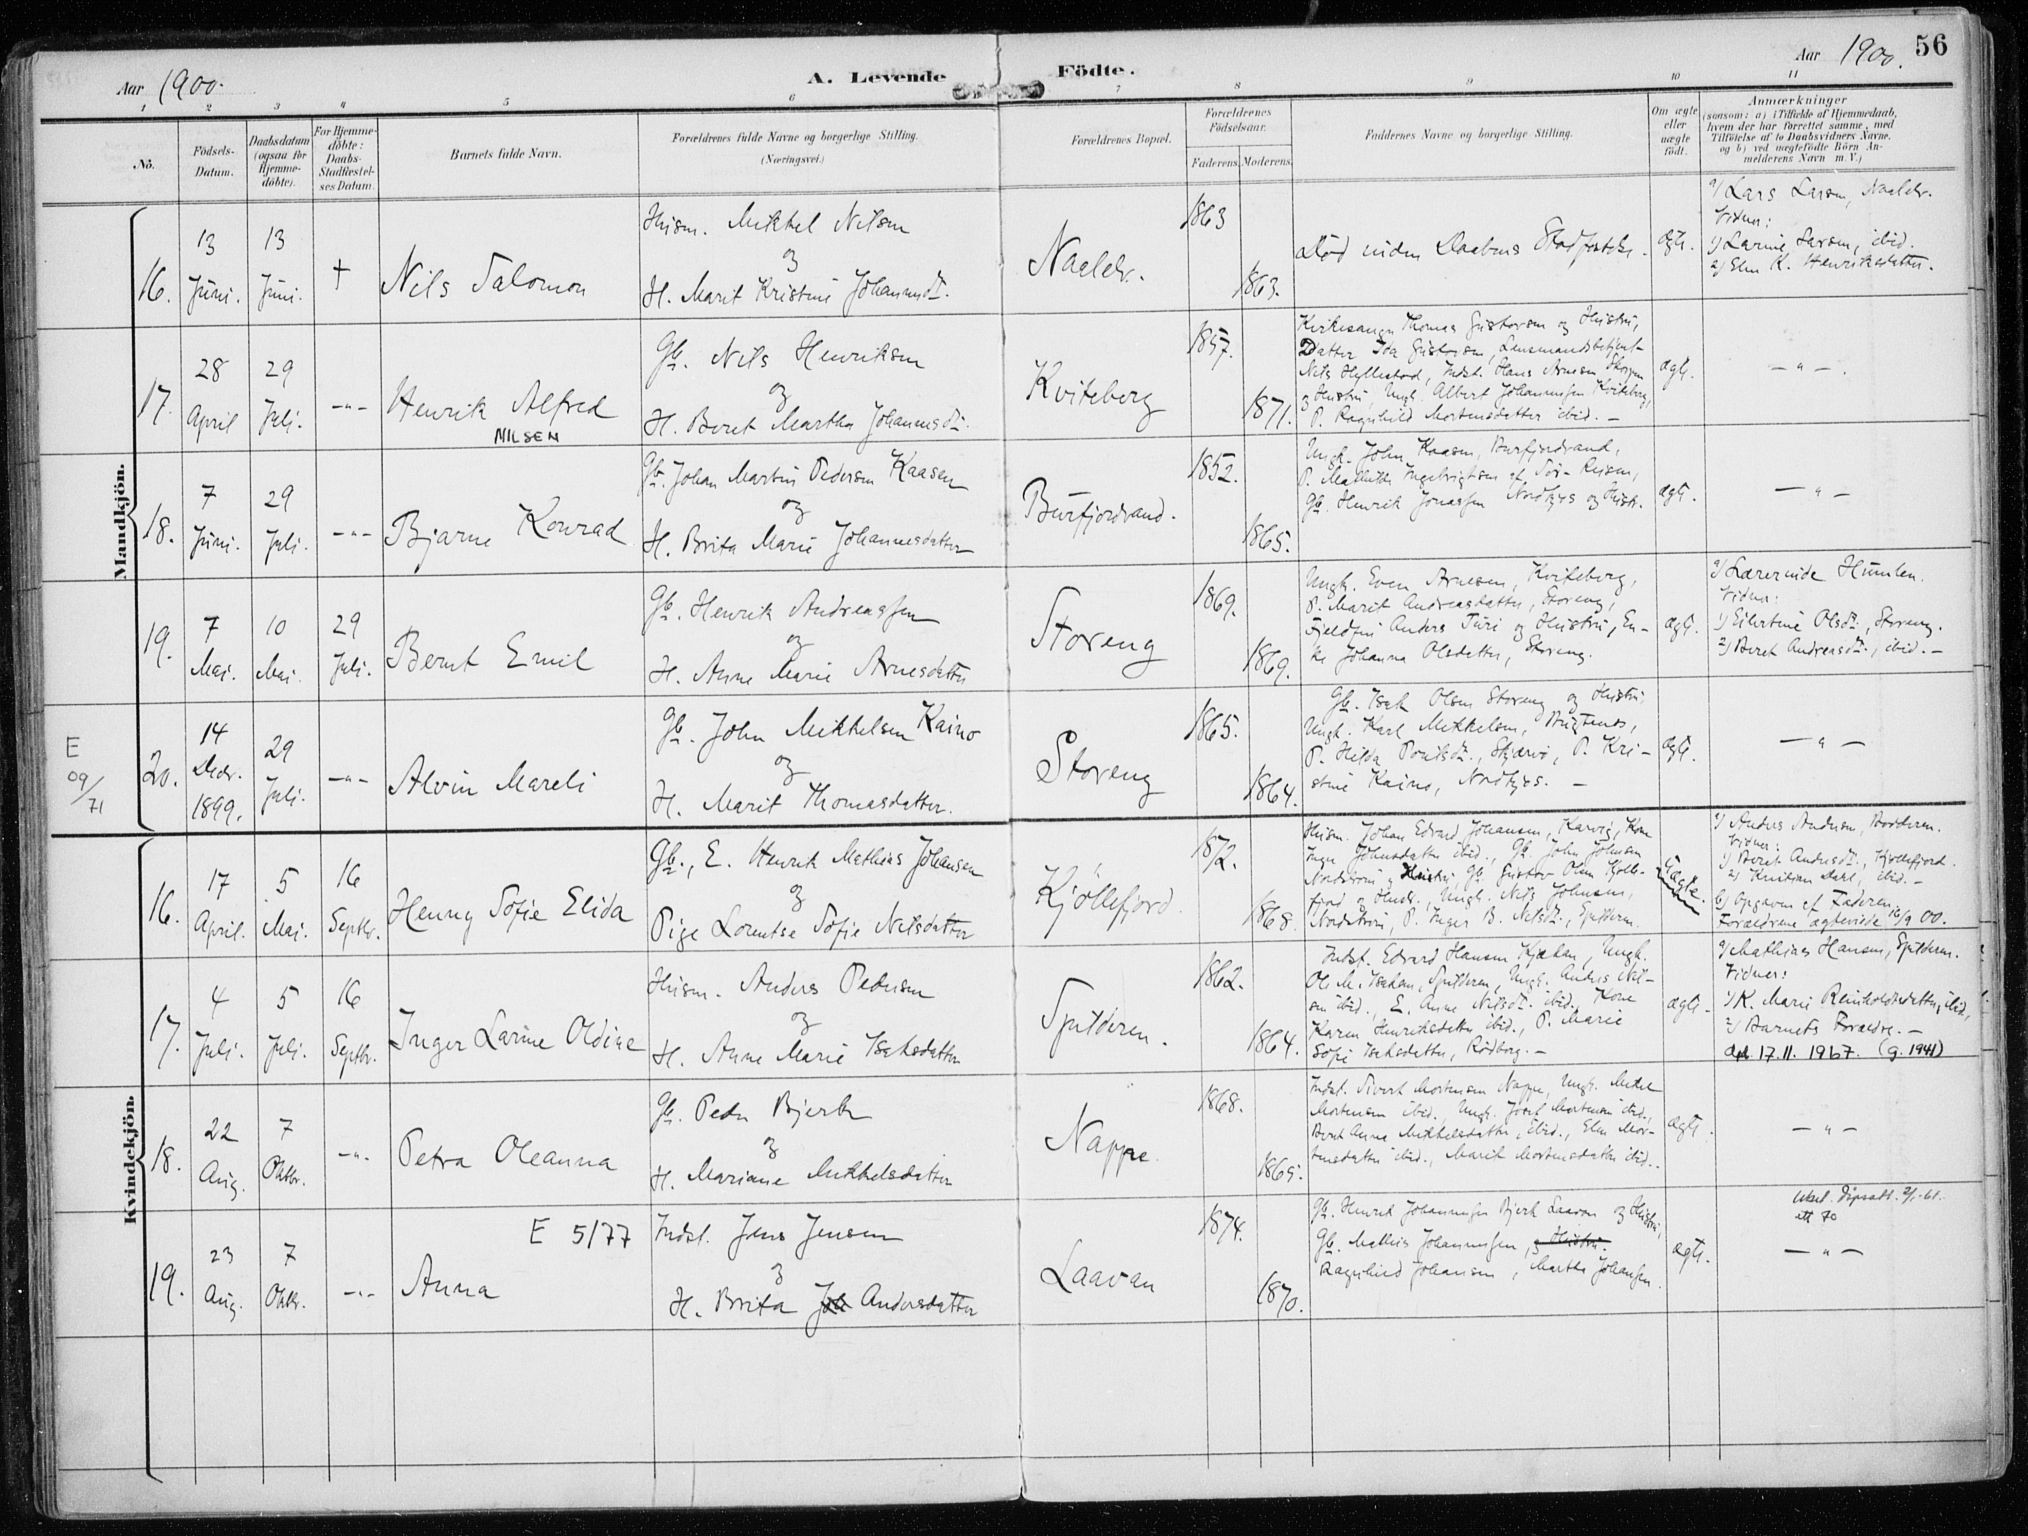 56
Aar 1900.
A. Levende Födte.
Aar 1900.
1 2 3 4 5 6 7 8 9 10 11
No.
Födsels-Datum.
Daabsdatum (ogsaa for Hjemme-döbte).
For Hjemme-döbte: Daabs-Stadfæstel-ses Datum.
Barnets fulde Navn.
Forældrenes fulde Navne og borgerlige Stilling.
(Næringsvei.)
Forældrenes Bopæl.
Forældrenes Födselsaar.
Faderens. Moderens.
Faddernes Navne og borgerlige Stilling.
Om ægte eller uægte født.
Anmærkninger
(saasom: a) i Tilfælde af Hjemmedaab,
hvem der har forrettet samme, med
Tilföielse af to Daabsvidners Navne,
og b) ved uægtefödte Börn An-
melderens Navn m. V.)
Mandkjön.
16.
13 Juni.
13 Juni.
+
Nils Salomon
Husm. Mikkel Nilsen
og
H. Marit Kristine Johannesdt.
Naaleb.
1863
1863.
Död inden Daabens Stadfæstelse.
ægte.
a) Lars Larsen, Naaleb.
Vidner:
1) Larine Larsen, ibid.
2) Elen K. Henriksdatter.
17.
28 April
29 Juli.
-"-
Henrik Alfred
NILSEN
Gb. Nils Henriksen
og
H. Beret Martha Johannesdt.
Kviteberg
1857.
1871.
Kirkesanger Thomas Gustavsen og Hustru,
Datter Ida Gustavsen, Lensmandsbetjent
Nils Hyllestad, Indst. Hans Arnesen
og Hustru, Ungk. Albert Johannessen Kviteberg,
P. Ragnhild Mortensdatter ibid. —
ægte.
— " — .
18.
7 Juni.
29 Juli.
-"-
Bjarne Konrad
Gb. Johan Martin Pedersen Kaasen
og
H. Brita Marie Johannesdatter
Burfjordvand.
1852.
1865.
Ungk. John Kaasen, Burfjordvand,
P. Mathilde Ingebrigtsen af Sör-Reisen,
Gb. Henrik Jonassen Nordkjos og Hustr.
ægte.
— " —
19.
7 Mai.
10 Mai.
29 Juli.
Bernt Emil
Gb. Henrik Andreassen
og
H. Anne Marie Arnesdatter
Storeng
1869.
1869.
Ungk. Even Arnesen, Kviteberg,
P. Marit Andreasdatter, Storeng,
Fjeldfin Anders Turi og Hustru, En-
ke Johanna Olsdatter, Storeng.
ægte.
a) Lærerinde Humlen.
Vidner:
1) Eilertine Olsdt., Storeng.
2) Beret Andreasdt., ibid. —
E
09/71
20.
14 Decbr. 1899.
29 Juli.
-"-
Alvin Mareli
Gb. John Mikkelsen Kaino
og
H. Marit Thomasdatter.
Storeng
1865.
1864.
Gb. Isak Olsen Storeng og Hustru,
Ungk. Karl Mikkelsen,
P. Hilda, Skjærvö, P. Kri-
stine Kaino, Nordkjos. —
ægte.
— " —
Kvindekjön.
16.
17 April.
5 Mai.
16 Septbr.
Henny Sofie Elida
Gb., E. Henrik Mathias Johansen
og
Pige Lorentse Sofie Nilsdatter
Kjöllefjord
1872.
1868.
Husm. Johan Edvard Johansen, Karvig, Kone
Inger Johnsdatter ibid., Gb. John Johnsen
Nordström og Hustru, Gb. Gustav Olsen Kjölle-
fjord og Hustr., Ungk. Nils Johnsen,
Nordström, P. Inger B. Nilsdt., Spilderen.
Uægte.
a) Anders Andersen, Bordderen.
Vidner:
1) Beret Andersdt., Kjöllefjord.
2) Knutsen Dahl, ibid. —
b) Opgaven af Faderen.
Forældrene ægteviede 16/9 00.
17.
4 Juli.
5 Juli.
16 Septbr.
Inger Larine Oldine
Husm. Anders Pedersen
og
H. Anne Marie Isaksdatter
Spilderen.
1862.
1864.
Indst. Edvard Hansen Kjækan, Ungk.
Ole M. Isaksen, Spilderen, Ungk. Anders Nil-
sen ibid., E. Anne Nilsdt. ibid., Kone
Karen Henriksdatter ibid., P. Marie
Sofie Isaksdatter, Rödberg. —
ægte.
a) Mathias Hansen, Spilderen.
Vidner:
1) K. Marie Reinholdtsdatter, ibid.,
2) Barnets Forældre. —
död 17.11. 1967. (g. 1941)
18.
22 Aug.
7 Oktbr.
-"-
Petra Oleanna
Gb. Peder Bjerk
og
H. Mariane Mikkelsdatter
Nappe.
1868.
1865.
Indst. Sivert Mortensen Nappe, Ungk. Mikkel
Mortensen ibid., Ungk. Josef Mortensen ibid.,
Beret Anna Mikkelsdatter, ibid., Elen Mor-
tensdatter ibid., Marit Mortensdatter ibid..
ægte.
— " —
19.
23 Aug.
7 Oktbr.
-"-
E 5/77
Anna
Indst. Jens Jensen
og
H. Brita Joh Andersdatter
Laavan
1874.
1870.
Gb. Henrik Johannessen Bjerk Laavan og Hustru,
Gb. Mathis Johannessen, og Hustru.
Ragnhild Johansen, Martha Johansen
ægte.
— " —